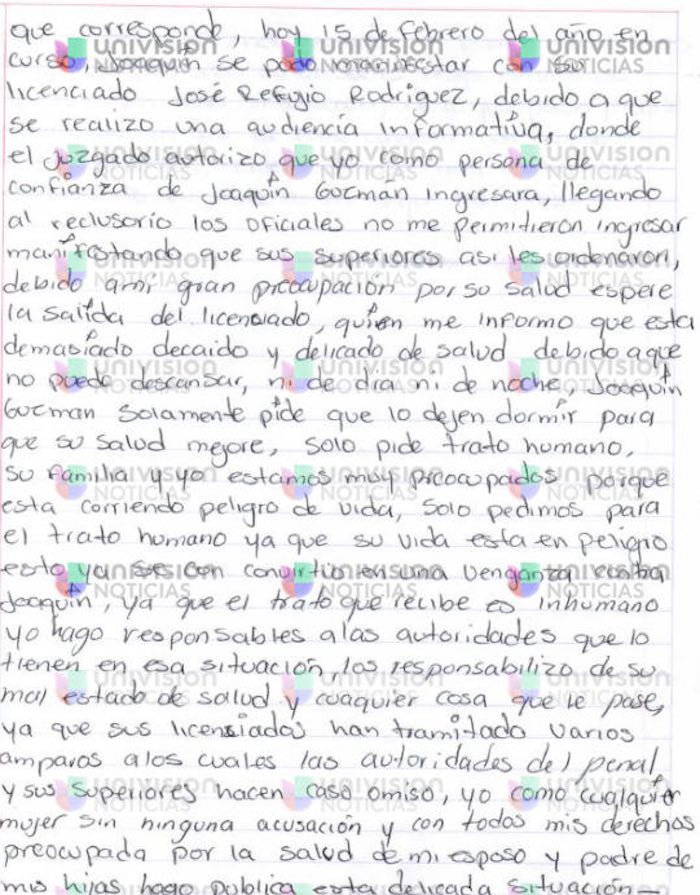 que corresponde, hoy 15 de febrero del año en
curso, Joaquín se pudo manifestar con su
licenciado José Refugio Rodríguez, debido a que
se realizo una audiencia informativa, donde
el juzgado autorizo que yo como persona de
confianza de Joaquín Guzmán ingresara, llegando
al reclusorio los oficiales no me permitieron ingresar
manifestando que sus superiores asi les ordenaron,
debido ami gran preocupación por su salud espere
la salida del licenciado, quien me informo que esta
demasiado decaido y delicado de salud debido aque
no puede descansar, ni de dia ni de noche, Joaquín
Guzman solamente pide que lo dejen dormir para
que su salud mejore, solo pide trato humano,
su familia y yo estamos muy preocupados porque
esta corriendo peligro de vida, solo pedimos para
el trato humano ya que su vida esta en peligro
esto ya se con convirtio en una venganza contra
Joaquín, ya que el trato que recibe es inhumano
yo hago responsables alas autoridades que lo
tienen en esa situación los responsabilizo de su
mal estado de salud y cuaquier cosa que le pase,
ya que sus licenciados han tramitado varios
amparos alos cuales las autoridades del penal
y sus superiores hacen caso omiso, yo como cualquier
mujer sin ninguna acusación y con todos mis derechos
preocupada por la salud de mi esposo y padre de
mis hijas hago publica esta delicada situación
UNIVISION
NOTICIAS